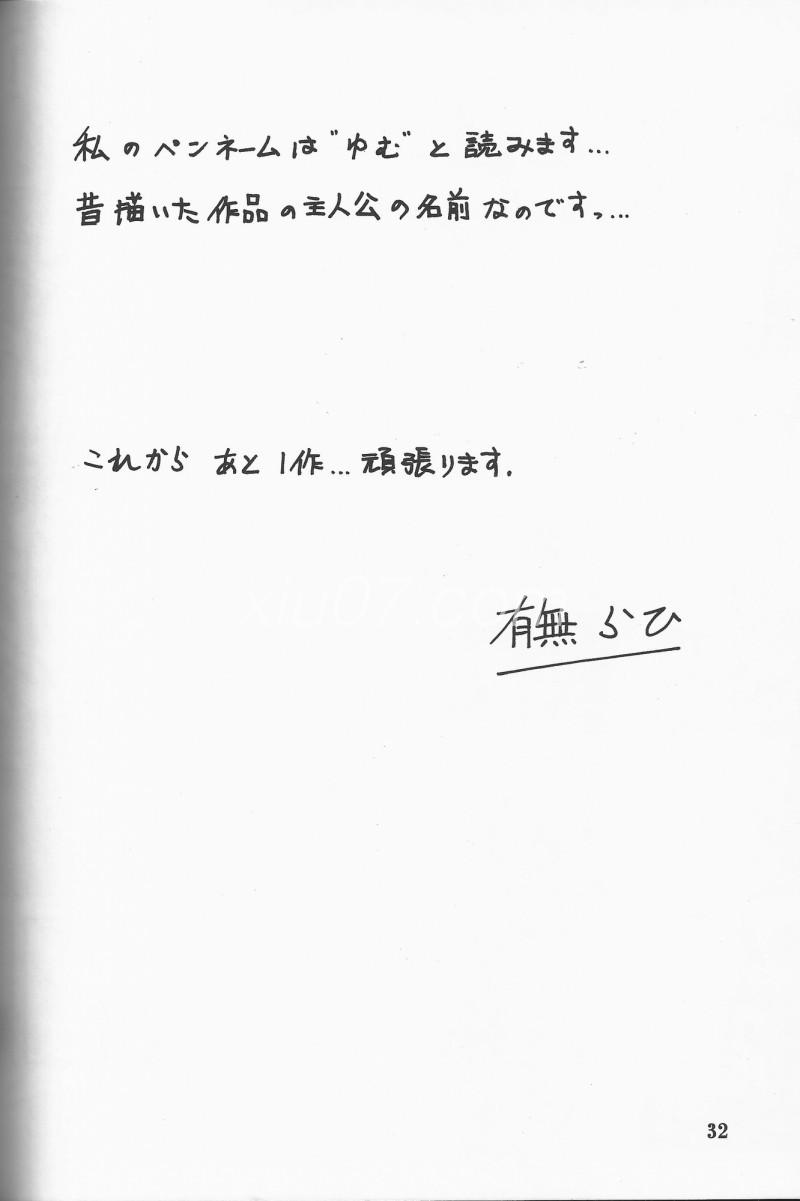 私のペンネームは"ゆむ"と読みます...
昔描いた作品の主人公の名前なのですっ...
これから あと1作...頑張ります.
xiu07.com
有無らひ
32